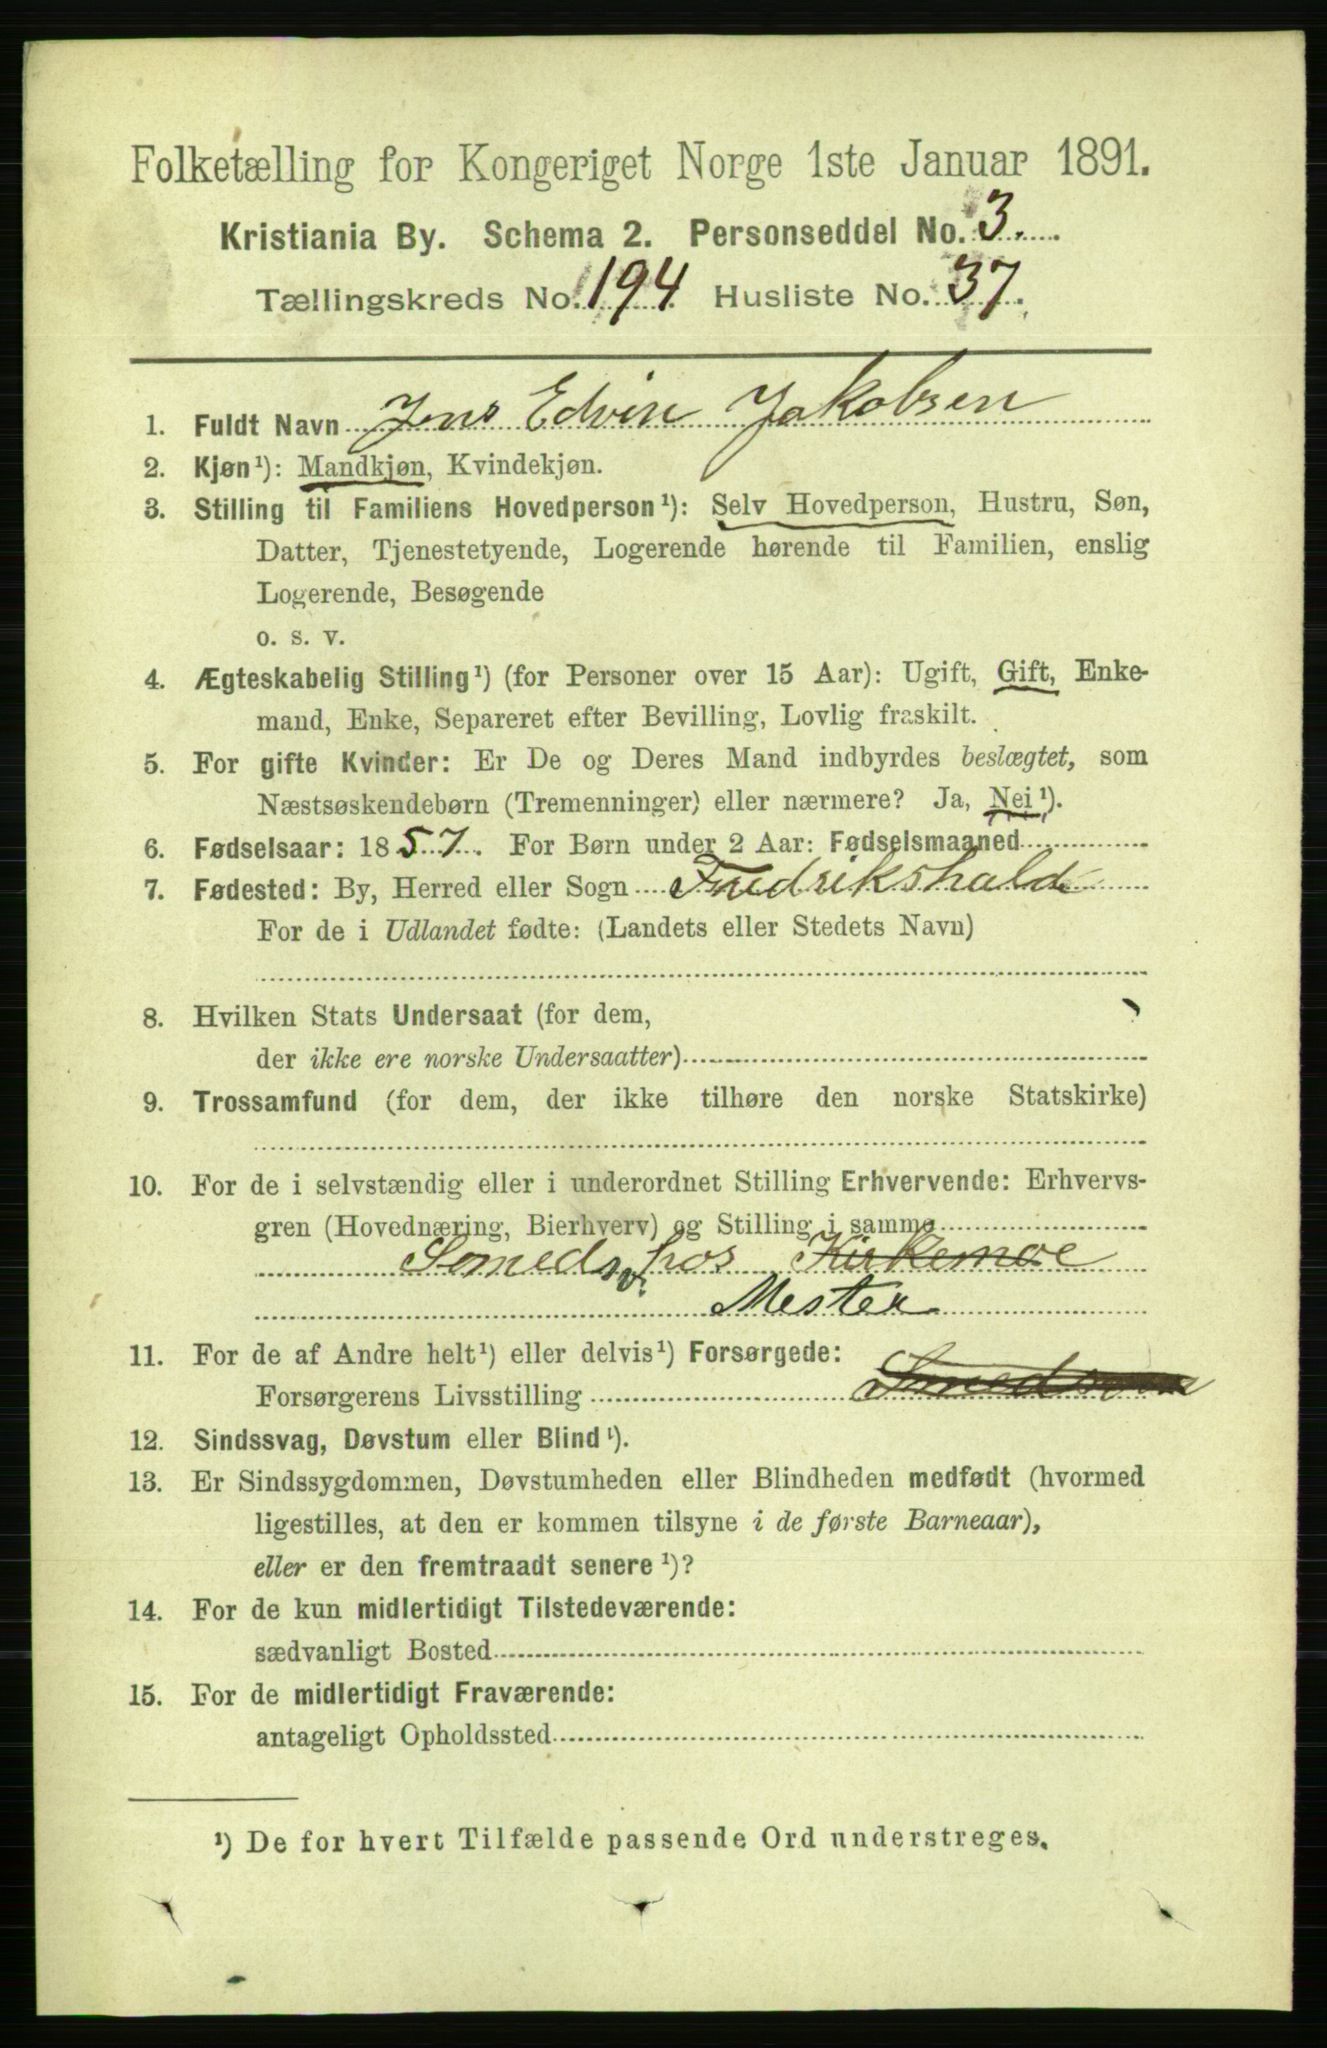 Folketælling for Kongeriget Norge 1ste Januar 1891.
Kristiania By. Schema 2. Personseddel No. 3.
Tællingskreds No. 194 Husliste No. 37.
1. Fuldt Navn Jens Edvin Jakobsen
2. Kjøn¹): Mandkjøn, Kvindekjøn.
3. Stilling til Familiens Hovedperson¹): Selv Hovedperson, Hustru, Søn,
Datter, Tjenestetyende, Logerende hørende til Familien, enslig
Logerende, Besøgende
o. s. v.
4. Ægteskabelig Stilling¹) (for Personer over 15 Aar): Ugift, Gift, Enke-
mand, Enke, Separeret efter Bevilling, Lovlig fraskilt.
5. For gifte Kvinder: Er De og Deres Mand indbyrdes beslægtet, som
Næstsøskendebørn (Tremenninger) eller nærmere? Ja, Nei¹).
6. Fødselsaar: 1857. For Børn under 2 Aar: Fødselsmaaned
7. Fødested: By, Herred eller Sogn Fredrikshald
For de i Udlandet fødte: (Landets eller Stedets Navn)
8. Hvilken Stats Undersaat (for dem,
der ikke ere norske Undersaatter)
9. Trossamfund (for dem, der ikke tilhøre den norske Statskirke)
10. For de i selvstændig eller i underordnet Stilling Erhvervende: Erhvervs-
gren (Hovednæring, Bierhverv) og Stilling i samme
Smedsv. hos Kirkemoe
Mester
11. For de af Andre helt¹) eller delvis¹) Forsørgede:
Forsørgerens Livsstilling
12. Sindssvag, Døvstum eller Blind¹).
13. Er Sindssygdommen, Døvstumheden eller Blindheden medfødt (hvormed
ligestilles, at den er kommen tilsyne i de første Barneaar),
eller er den fremtraadt senere¹)?
14. For de kun midlertidigt Tilstedeværende:
sædvanligt Bosted
15. For de midlertidigt Fraværende:
antageligt Opholdssted
¹) De for hvert Tilfælde passende Ord understreges.